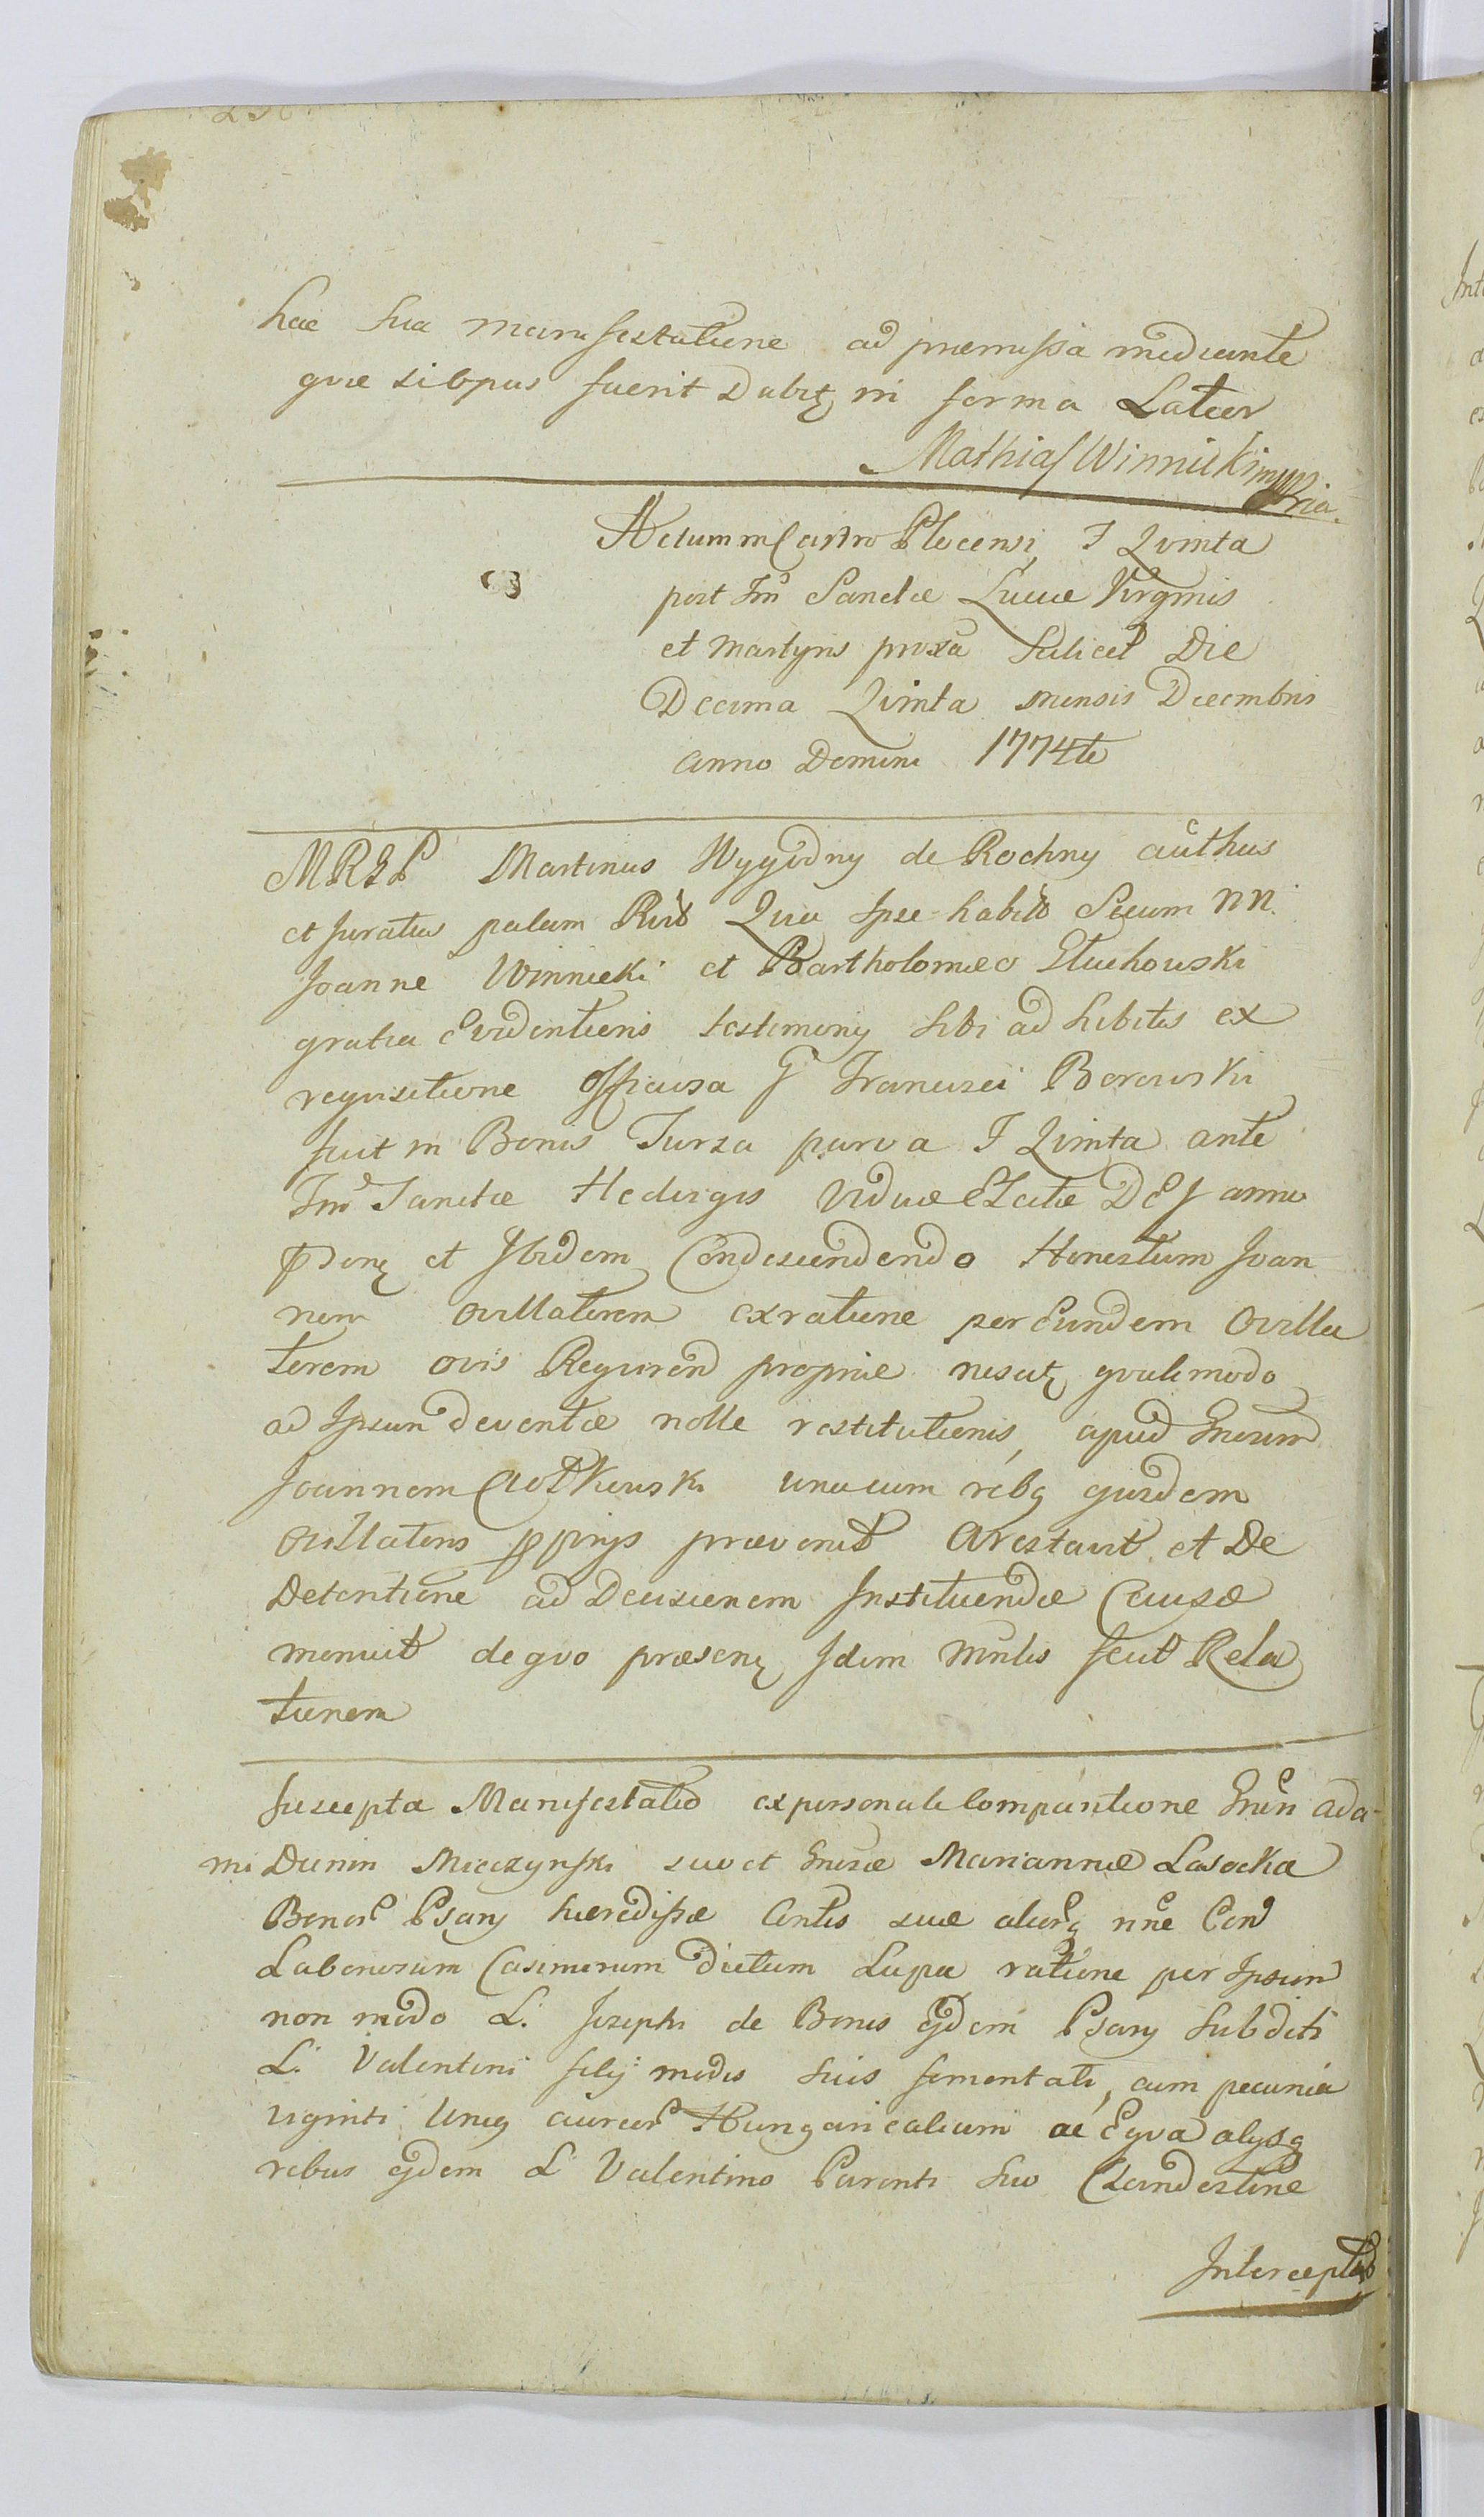 hac sua manifestatione ad praemissa mediante
quae si opus fuerit Dabitꝫ in forma Latior
Mathias Winnicki mppria
Actum in Castro Plocensi F Quinta
post Fm Sanctae Luciae Virginis
et Martyris proxa Scilicet Die
Decima Quinta mensis Decembris
anno Domini 1774to
MRGP Martinus Wygodny de Rochny authus
et Juratus palam Quia Ipse habitis Secum NN.
Joanne Winnicki et Bartholomaeo Gluchowski
gratia Evidentioris testimony Sibi ad hibitis ex
requisitione officiosa G Francisci Borowski
fuit in Bonis Turza parva F Quinta ante
Fm Sanctae Hedvigis Viduae Electae DEJ anno
et Ibidem Condescendendo Honestum Joan
nem ovillatorem ex ratione per Eundem Ovilla
torem ovis proprie nescitꝫ quali modo
ad Ipsum deventae nolle restitutionis, apud Gnosum
Joannem unacum rebꝫ ejusdem
Ovillatoris pprijs praevenit Arestavit et De
Detentione ad Decisionem Instituendae Causae
monuit de quo praesenꝫ Idem Mnlis fecit Rela
tionem
Suscepta Manifestatio ex personali Comparitione Gnen Ada-
mi Dunin Mieczynski suo et Gnosae Mariannae Lasocka
Bonor Psary haeredissae Contis suae aliorꝫ nne Con
Laboriosum Casimirum dictum Lupa ratione per Ipsum
non modo L. Josephi de Bonis ejdem Psary Subditi
L. Valentini filij modis suis fomentati, cum pecunia
viginti Unius aureor Hungaricalium ac Equa alysꝗ
rebus ejdem L Valentino Parenti suo Clandestine
Interceptis